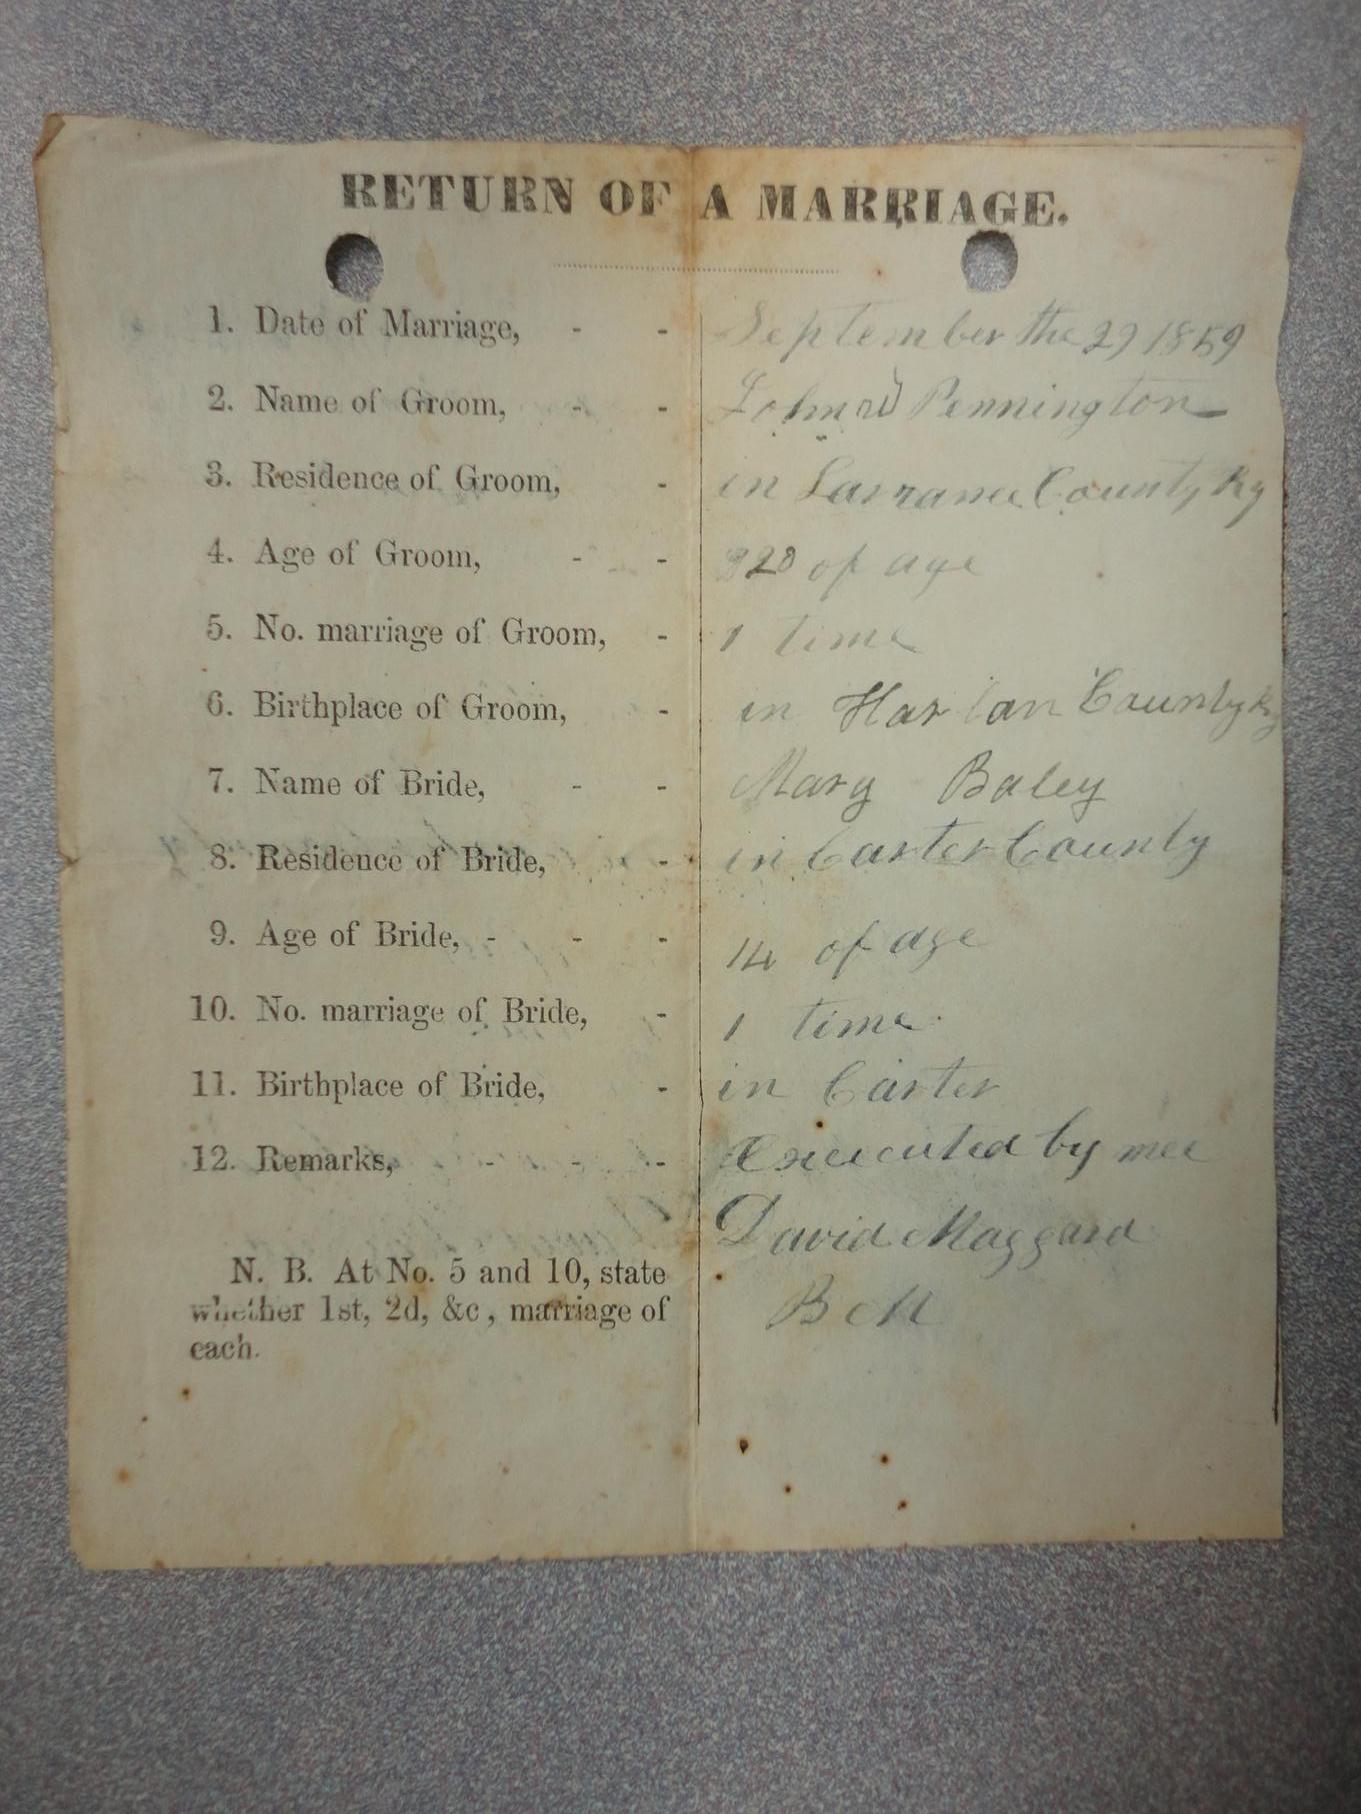 RETURN OF A MARRIAGE.
1. Date of Marriage, - - September the 29 1859
2. Name of Groom, - - Pennington
3. Residence of Groom, - in Larrance County Ky
4. Age of Groom, - - 20 of age
5. No. marriage of Groom, - 1 time
6. Birthplace of Groom, - in Harlan County Ky
7. Name of Bride, - - Mary Baley
8. Residence of Bride, - in Carter County
9. Age of Bride, - - - 14 of age
10. No. marriage of Bride, - 1 time
11. Birthplace of Bride, - in Carter
12. Remarks, - - - Executed by mee
David Maggard
N. B. At No. 5 and 10, state
whether 1st, 2d, &c, marriage of
each.